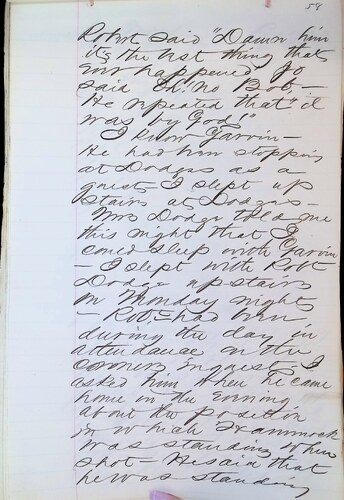 58
Robert said "Damn him
it's the best thing that
ever happened. Jo
said Oh. no Bob –
He repeated that "it
was by God!"
I know Garvin –
He had been stopping
at Dodges as a
guest – I slept up
stairs at Dodges –
Mrs Dodge told me
this night that I
could sleep with Garvin
– I slept with Robt
Dodge upstairs
on Monday night
– Robt had been
during the day in
attendance on the
coroners inquest – I
asked him when he came
home in the evening
about the position
in which Hammock
was standing when
shot – He said that
he was standing